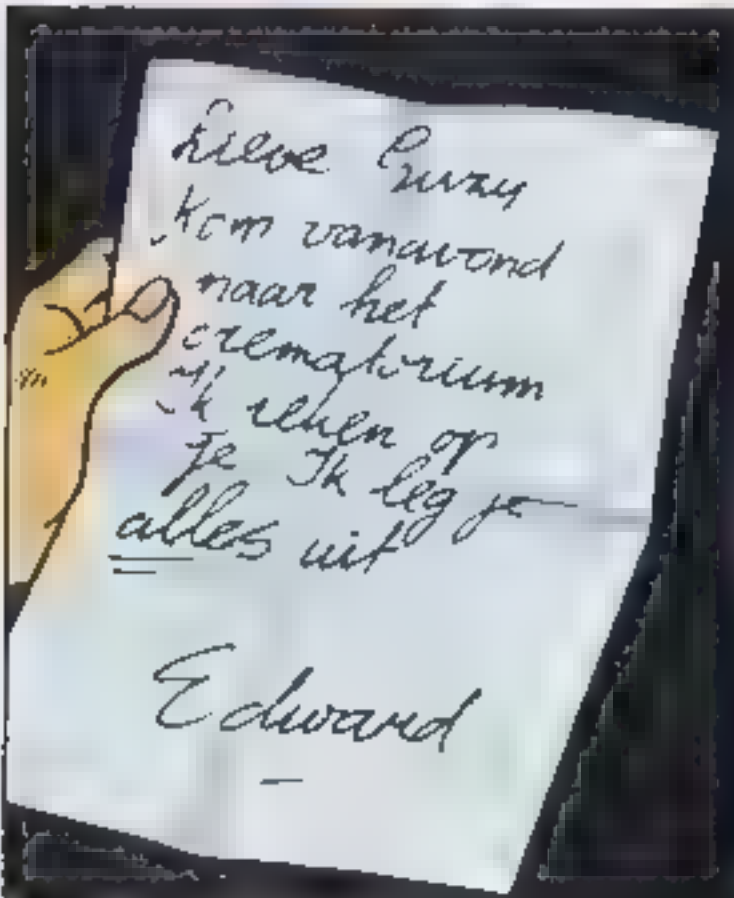 Lieve Suzy
Kom vanavond
naar het
crematorium
Ik reken op
je Ik leg je
alles uit
Edward